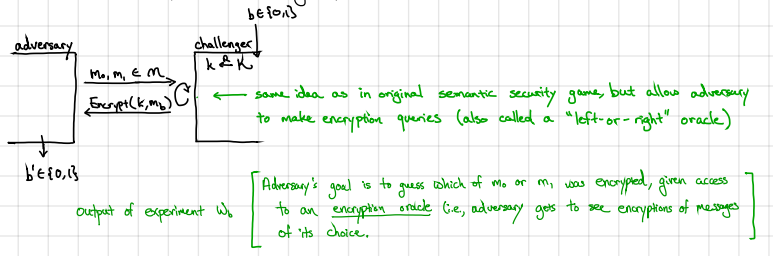 b ∈ {0,1}
adversary
challenger
k ←ᴿ K
m₀, m₁ ∈ M
Encrypt(k, m_b)
← same idea as in original semantic security game, but allow adversary
to make encryption queries (also called a "left-or-right" oracle)
b' ∈ {0,1}
output of experiment W_b
[Adversary's goal is to guess which of m₀ or m₁ was encrypted, given access
to an encryption oracle (i.e., adversary gets to see encryptions of messages
of its choice.]